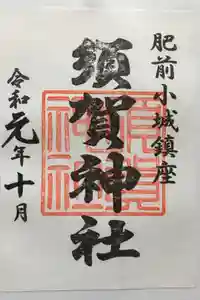 肥前小城鎮座
須賀神社
令和元年十月
須賀神社